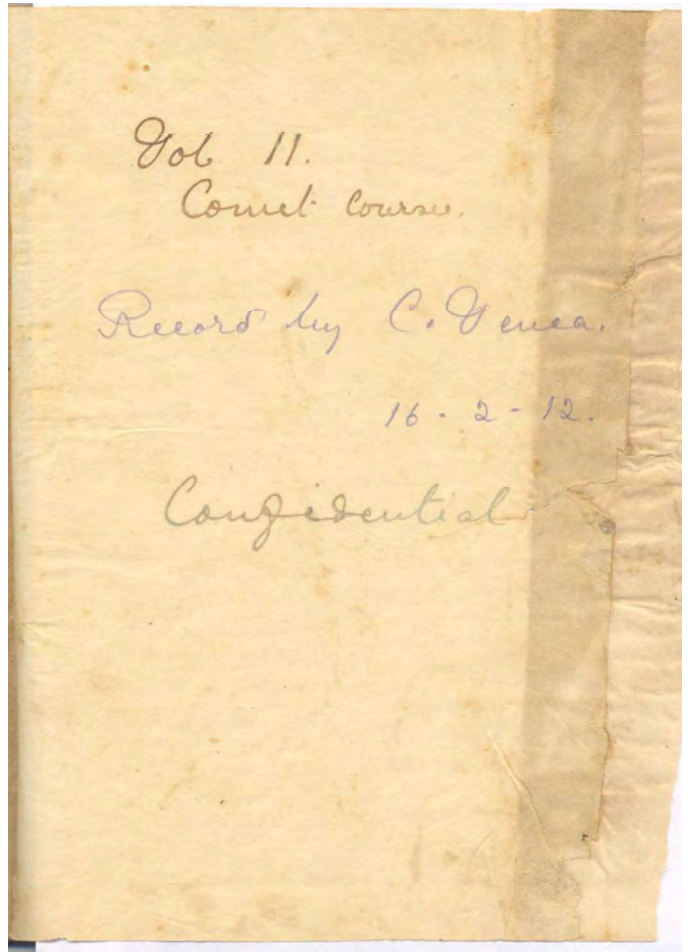 Vol 11.
Comet Course.
Record by C.
16 - 2 - 12.
Confidential